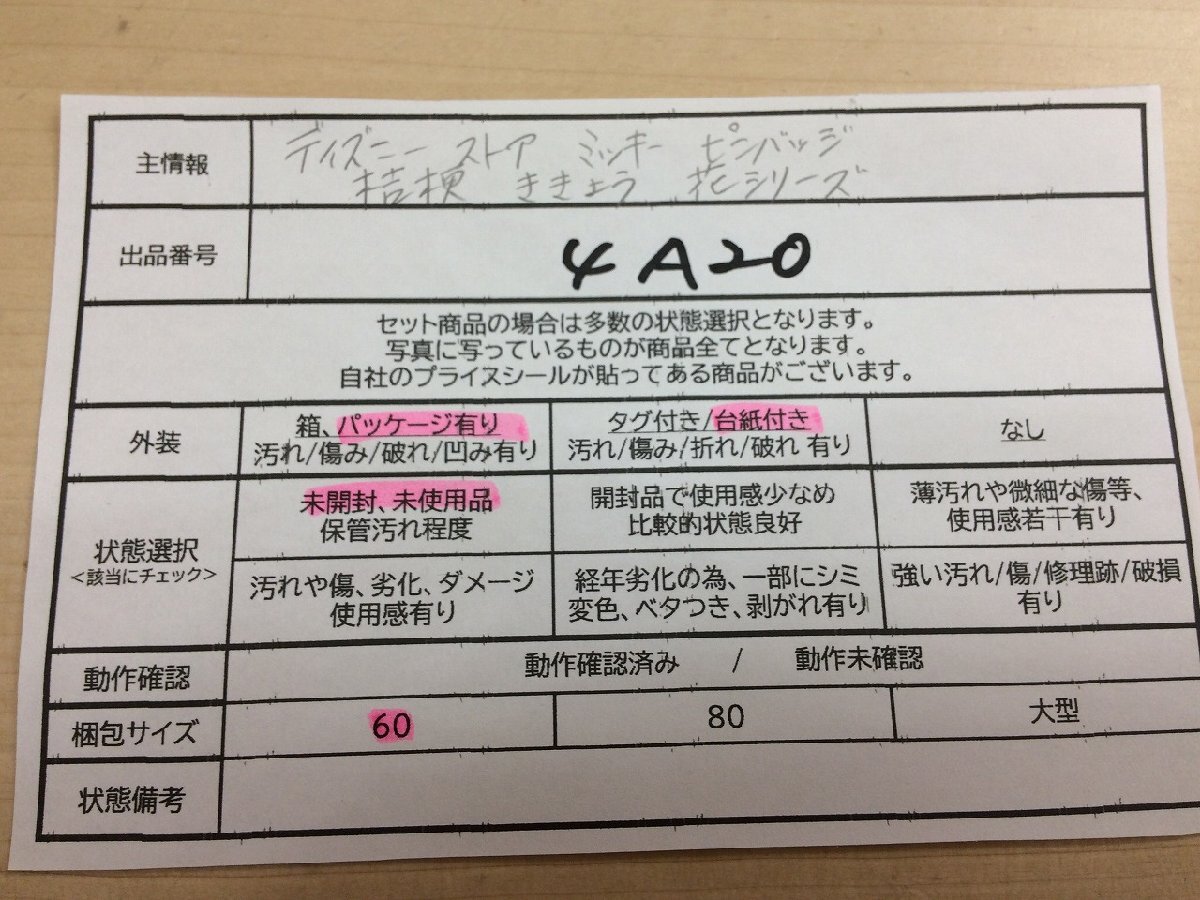 主情報
ディズニー ストア ミッキー ピンバッジ
桔梗 ききょう 花シリーズ
出品番号
4A20
セット商品の場合は多数の状態選択となります。
写真に写っているものが商品全てとなります。
自社のプライスシールが貼ってある商品がございます。
外装
箱、パッケージ有り
汚れ/傷み/破れ/凹み有り
タグ付き/台紙付き
汚れ/傷み/折れ/破れ 有り
なし
状態選択
<該当にチェック>
未開封、未使用品
保管汚れ程度
開封品で使用感少なめ
比較的状態良好
薄汚れや微細な傷等、
使用感若干有り
汚れや傷、劣化、ダメージ
使用感有り
経年劣化の為、一部にシミ
変色、ベタつき、剥がれ有り
強い汚れ/傷/修理跡/破損
有り
動作確認
動作確認済み / 動作未確認
梱包サイズ
60
80
大型
状態備考